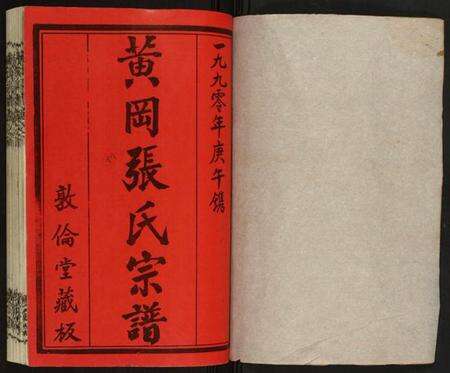 一九九零年庚午镌
黄岡張氏宗譜
敦倫堂藏板